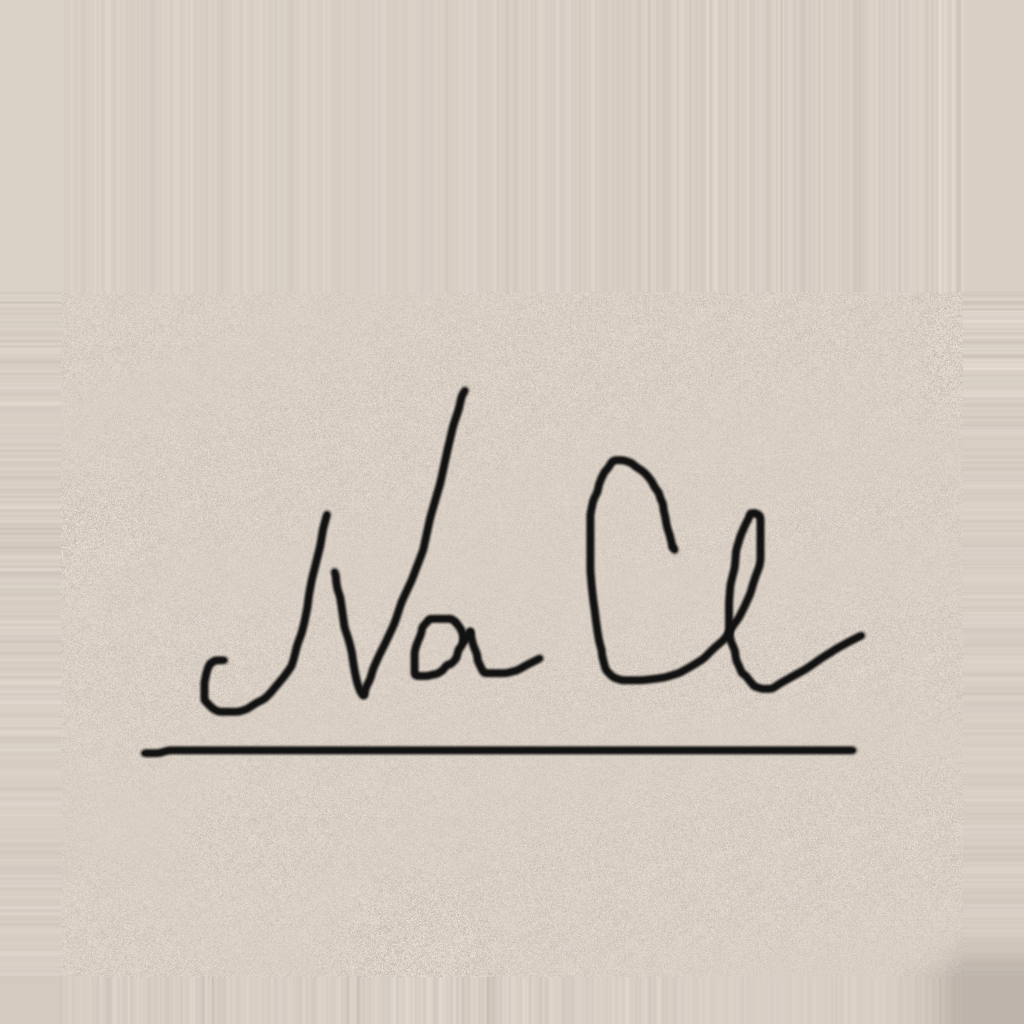 Na Cl